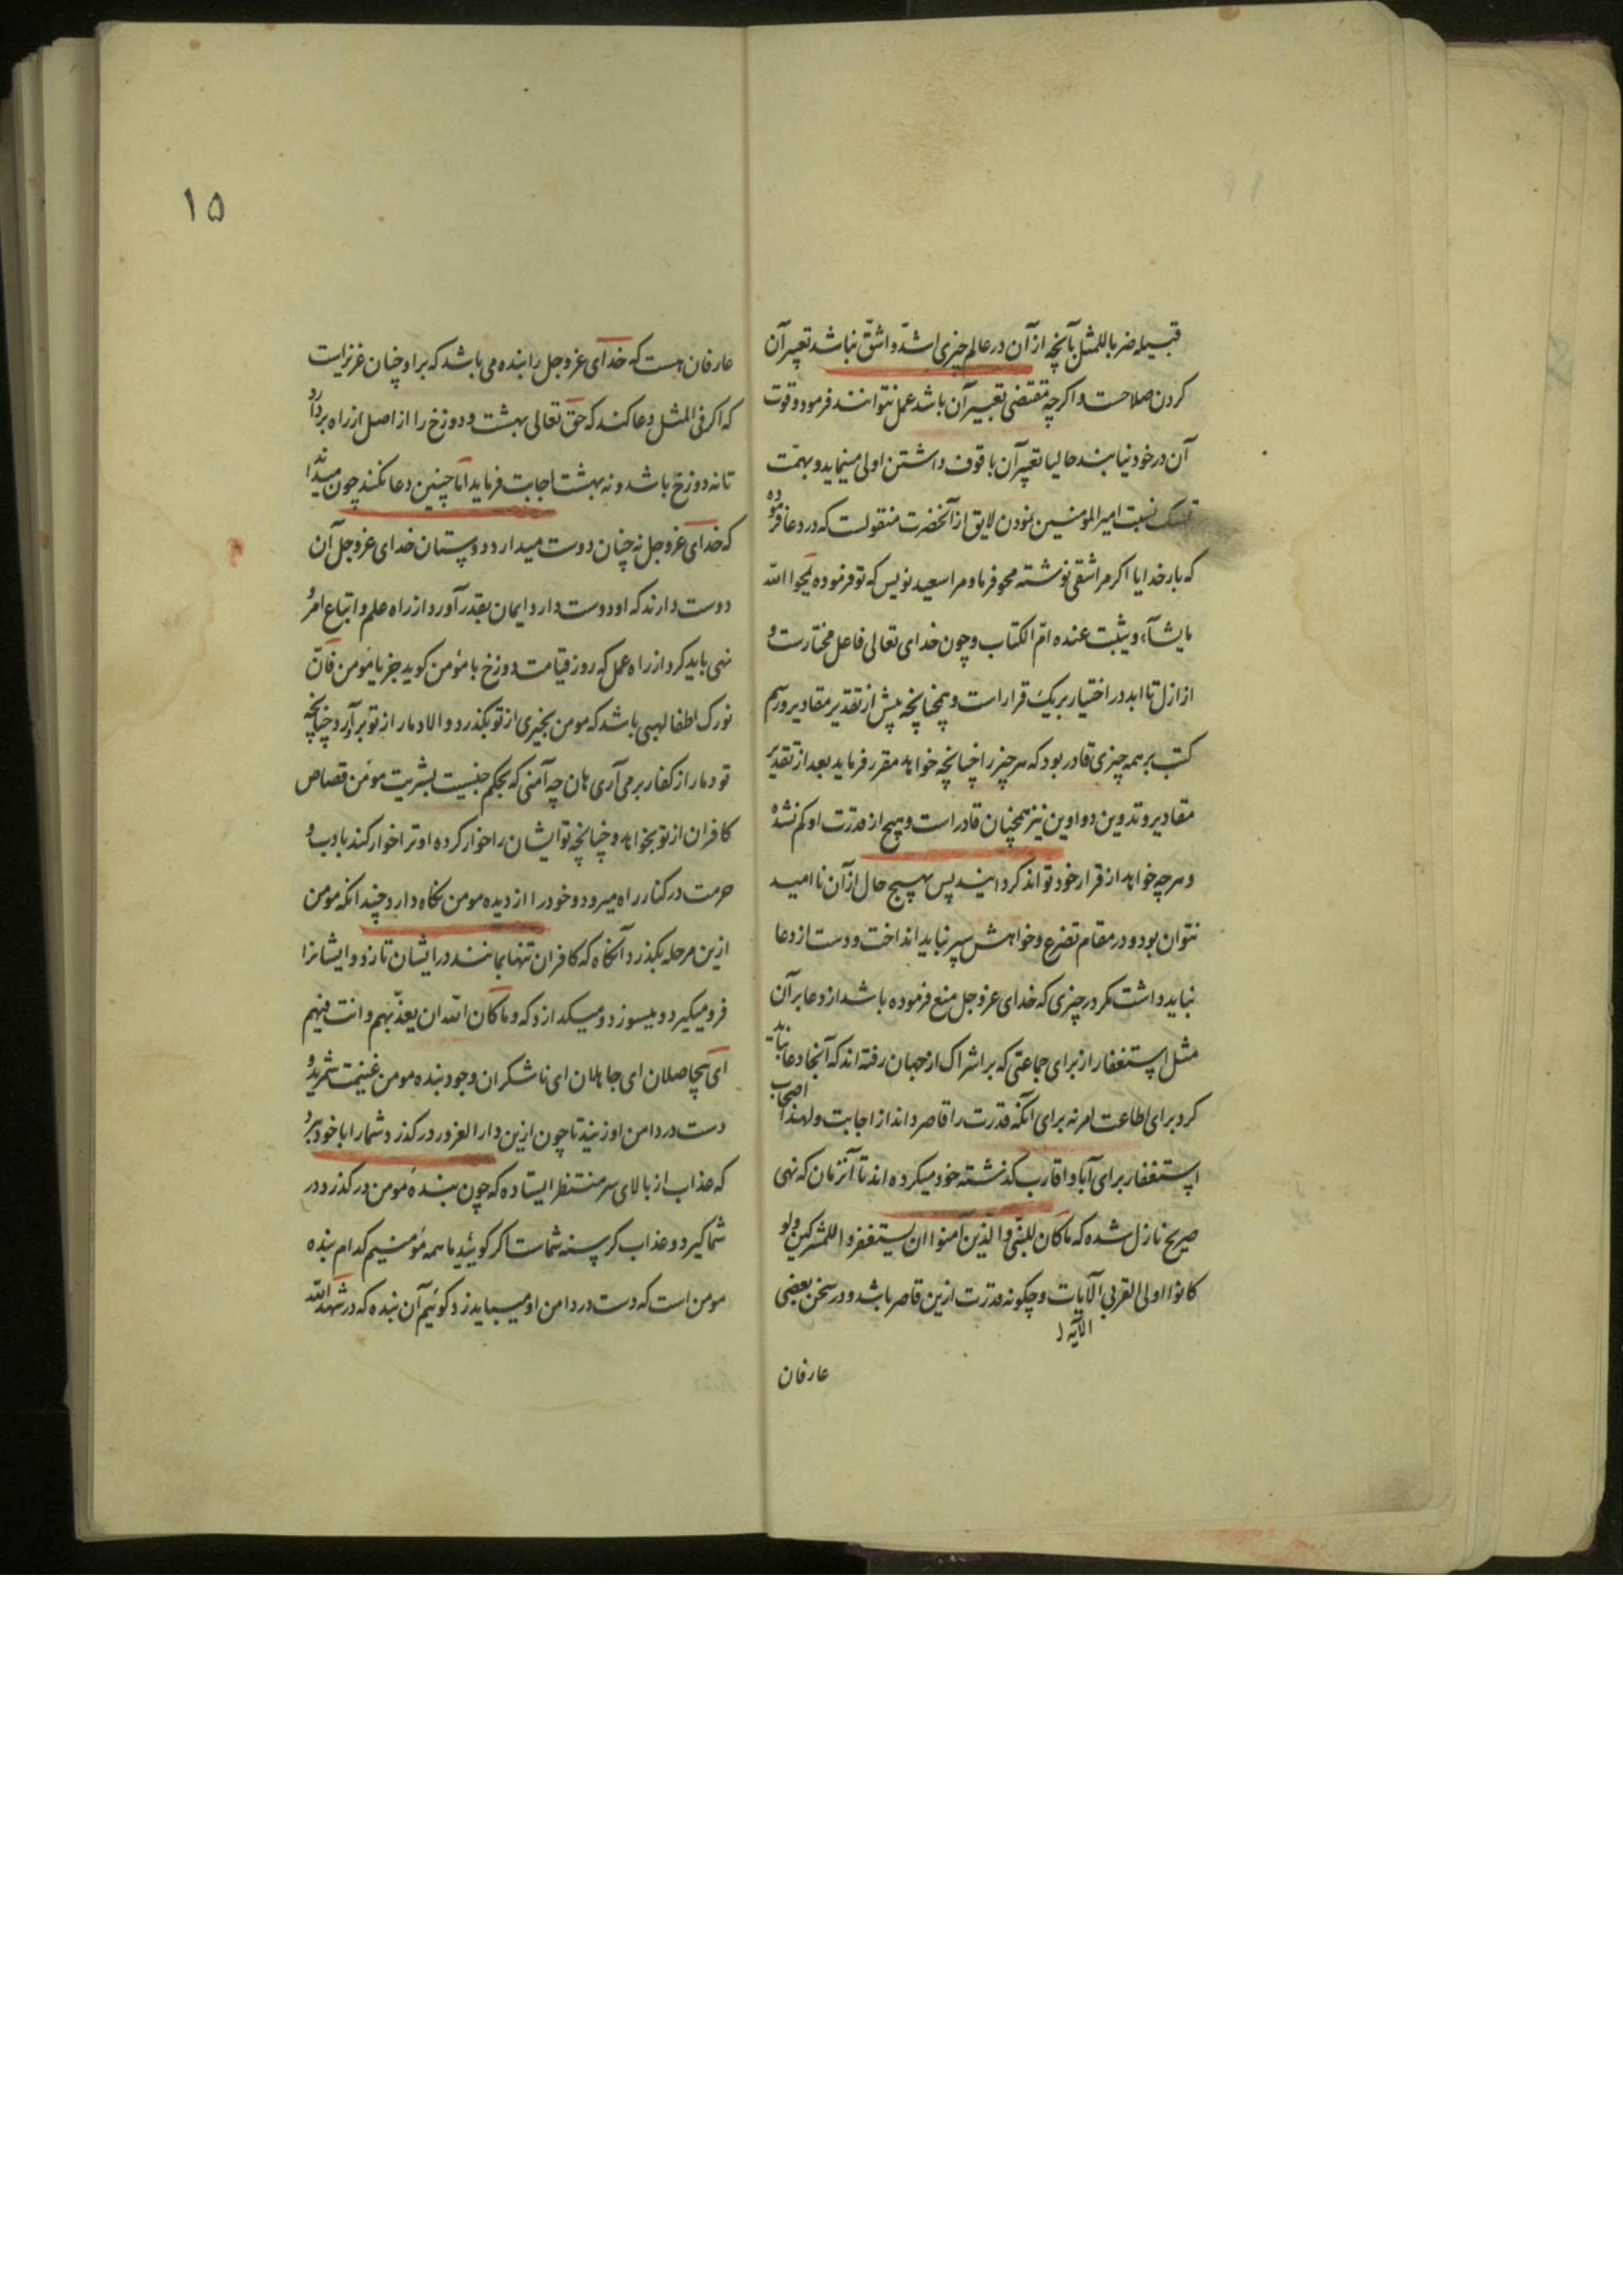 قبیله ضربا للمثل بآنچه از آن در عالم چیزی اشدّ و اشقّ نباشد تعبیر آن
کردن صلاحست و اکرچه مقتضی تعبیر آن باشد عمل نتوانند فرمود و قوت
آن در خود نیابند حالیا تعبیر آن با قوف داشتن اولی مینماید و بهمّت
تمسک نسبت امیرالمومنین نمودن لایق از آنحضرت منقولست که در دعا فرموده
که بار خدایا اکر مرا شقی نوشته محو فرما و مرا سعید نویس که تو فرموده یمحوا الله
مایشآء و یثبت عنده امّ الکتاب و چون خدای تعالی فاعل مختارست و
از ازل تا ابد در اختیار بریک قرار است و همچنانچه پیش از تقدیر مقادیر و رسم
کتب بر همه چیزی قادر بود که هر چیز را چنانچه خواهد مقرر فرماید بعد از تقدیر
مقادیر و تدوین دواوین نیز همچنان قادر است و هیچ از قدرت او کم نشده
و هر چه خواهد از قرار خود تواند کردانید پس بهیچ حال از آن ناامید
نتوان بود و در مقام تضرع و خواهش سپر نباید انداخت و دست از دعا
نباید داشت مکر در چیزی که خدای عزوجل منع فرموده باشد از دعا بر آن
مثل استغفار از برای جماعتی که بر اشراک از جهان رفته اند که آنجا دعا نباید
کرد برای اطاعت امر نه برای آنکه قدرت را قاصر داند از اجابت و لهذا اصحاب
استغفار برای آبا و اقارب کذشته خود میکرده اند تا آنزمان که نهی
صریح نازل شده که ماکان للنبّی و الذین آمنوا ان یستغفروا للمشرکین ولو
کانوا اولی القربی الآیات و چکونه قدرت ازین قاصر باشد و در سخن بعضی
الآیه
عارفان
۱۵
عارفان هست که خدای عزوجل را بنده می باشد که بر او چنان عزیز است
که اکر فی المثل دعا کند که حق تعالی بهشت و دوزخ را از اصل از راه بردارد
تا نه دوزخ باشد و نه بهشت اجابت فرماید امّا چنین دعا نکنند چون میدانند
که خدای عزوجل نه چنان دوست میدارد و دوستان خدای عزوجل آن
دوست دارند که او دوست دارد ایمان بقدر آورد از راه علم و اتباع امر و
نهی باید کرد از راه عمل که روز قیامت دوزخ با مؤمن کوید جز یا مؤمن فانّ
نورک اطفا لهبی باشد که مومن بخیری از تو بکذرد و الا دمار از تو برآرد چنانچه
تو دمار از کفار برمی آری هان چه آمنی که بحکم جنسیت بشریت مؤمن قصاص
کافران از تو بخواهد و چنانچه تو ایشان را خوار کرده او ترا خوار کند باادب و
حرمت در کنار راه میرود و خود را از دیده مومن نکاه دارد چندانکه مومن
ازین مرحله بکذرد آنکاه که کافران تنها بمانند در ایشان تازد و ایشانرا
فرو میکیرد و میسوزد و میکدازد که و ماکان الله ان یعذّبهم و انت فیهم
ای بیحاصلان ای جاهلان ای ناشکران وجود بنده مومن غنیمت شمرید و
دست در دامن او زنید تا چون ازین دارالغرور درکذرد شما را با خود ببرد
که عذاب از بالای سر منتظر ایستاده که چون بنده مؤمن درکذرد در
شما کیرد و عذاب کرسنه شماست اکر کوئید ما همه مؤمنیم کدام بنده
مومن است که دست در دامن او میباید زد کوئیم آن بنده که در شهد الله